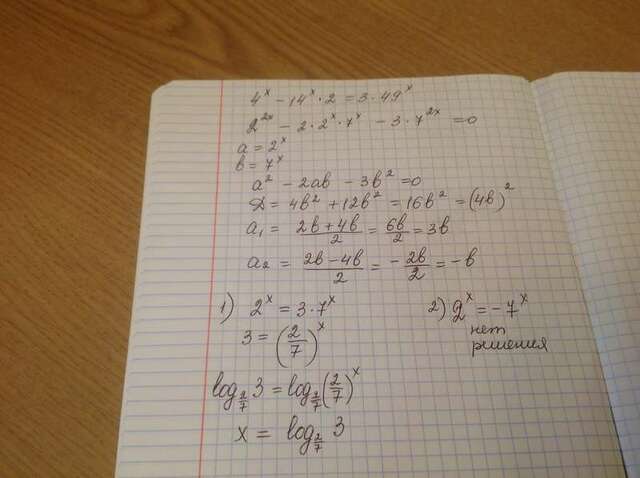 4^x - 14^x · 2 = 3 · 49^x
2^{2x} - 2 · 2^x · 7^x - 3 · 7^{2x} = 0
a = 2^x
b = 7^x
a^2 - 2ab - 3b^2 = 0
D = 4b^2 + 12b^2 = 16b^2 = (4b)^2
a_1 = \frac{2b + 4b}{2} = \frac{6b}{2} = 3b
a_2 = \frac{2b - 4b}{2} = -\frac{2b}{2} = -b
1) 2^x = 3 · 7^x
3 = (\frac{2}{7})^x
log_{\frac{2}{7}} 3 = log_{\frac{2}{7}} (\frac{2}{7})^x
x = log_{\frac{2}{7}} 3
2) 2^x = -7^x
нет
решения